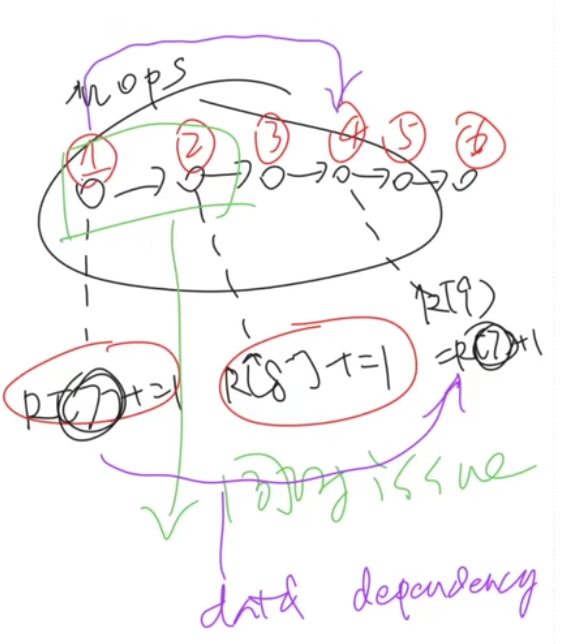 μops
1 2 3 4 5 6
R[7] += 1
R[8] += 1
R[9]
= R[7] + 1
issue
data dependency